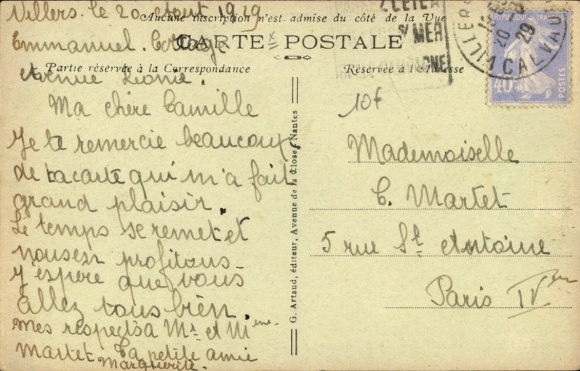 Villers. le 20 août 1929
Aucune inscription n'est admise du côté de la Vue
Emmanuel. Cottage
CARTE POSTALE
Avenue Léonie.
Partie réservée à la Correspondance
Réservée à l'Adresse
Ma chère Camille
Je te remercie beaucoup
de ta carte qui m'a fait
grand plaisir.
Le temps se remet et
nous en profitons.
J'espère que vous
allez tous bien.
mes respects à Mr. et Mme
Martet Ta petite amie
Marguerite.
G. Artaud, éditeur, Avenue de la Close, Nantes
10f
Mademoiselle
C. Martet
5 rue St Antoine
Paris IVem
MER
VILLERS
20
29
CALVADOS
REPUBLIQUE FRANÇAISE
40c
POSTES